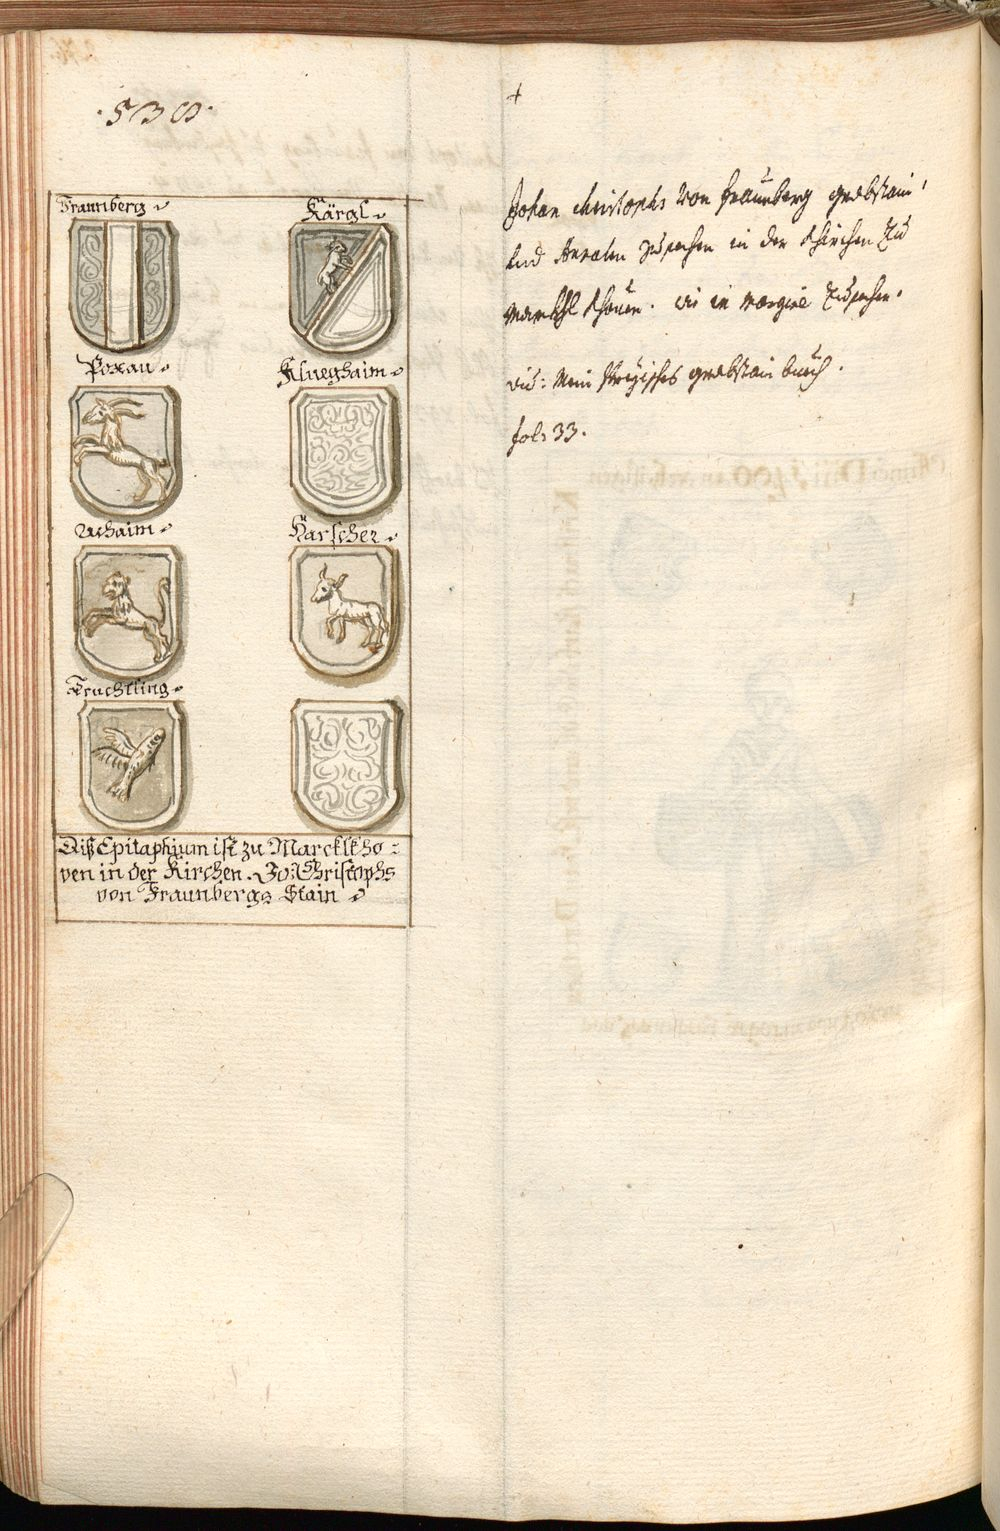 ·538·
Fraunberg
Kärgl
Poxau
Klueghaim
Achaim
Harscher
Truchtling
Diß Epitaphium ist zu Marcklkho=
ven in der Kirchen. Jo: Christophs
von Fraunbergs Stain
+
Johan Christophs von Fraunberg grabstain
und Annaten zusechen in der Khürchen zu
Marckhl Khouen. wie in margine zusechen.
vid: mein grabstain buech.
fol: 33.